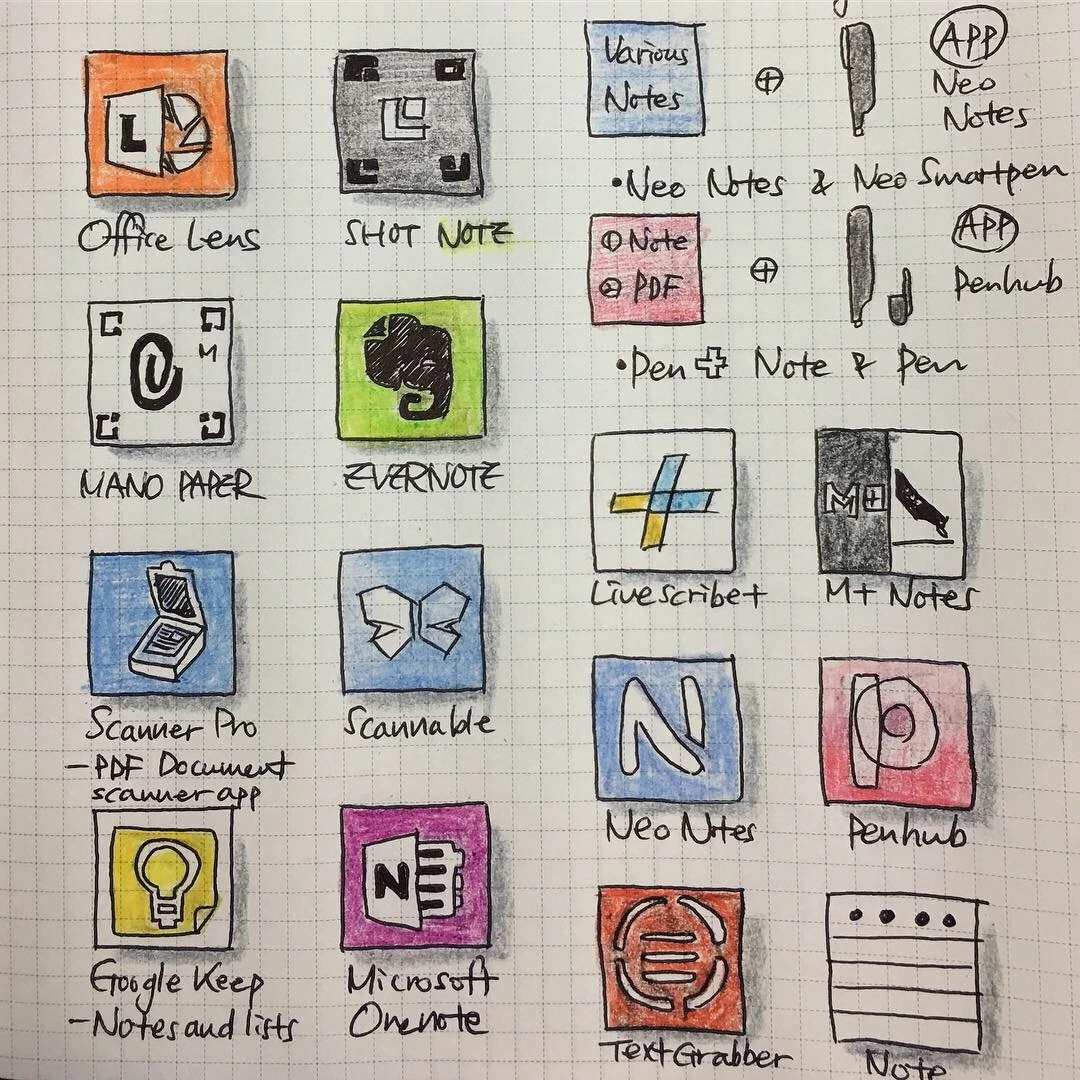 L
Office Lens
SHOT NOTE
M
MANO PAPER
EVERNOTE
Scanner Pro
- PDF Document
scanner app
Scannable
Google Keep
- Notes and lists
N
Microsoft
Onenote
Various
Notes
⊕
APP
Neo
Notes
• Neo Notes & Neo Smartpen
① Note
② PDF
⊕
APP
Penhub
• Pen + Note & Pen
Livescribe+
M+
M+ Notes
N
Neo Notes
P
Penhub
TextGrabber
Note